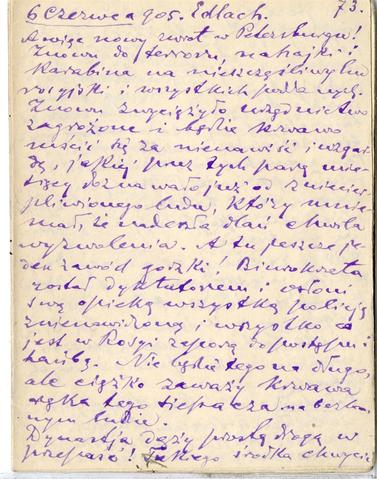 6 Czerwca 905. Edlach. 73.
A więc nowy zwrot w Petersburgu!
Znowu do terroru, nahajki i
karabina na nieszczęśliwy lud
rosyjski i wszystkich podwł
Znowu zwyciężyło urzędnictwo
zagrożone i będzie krwawo
mścić się za nienawiść i wzgar
dę, jakiej przez tych parę mie-
sięcy doznawało już od zniecier
pliwionego ludu, który mnie
mał, że nadeszła dlań chwila
wyzwolenia. A tu jeszcze je
den zawód gorzki! Biurokrata
został dyktatorem i osłoni
swą opieką wszystką policję
znienawidzoną i wszystko co
jest w Rosyi zaporą do postępu i
hańbą. Nie będzie tego na długo,
ale ciężko zaważy krwawa
ręka tego siepacza na bezbron
nym ludzie.
Dynastja dąży prostą drogą w
przepaść! Takiego środka chwycić